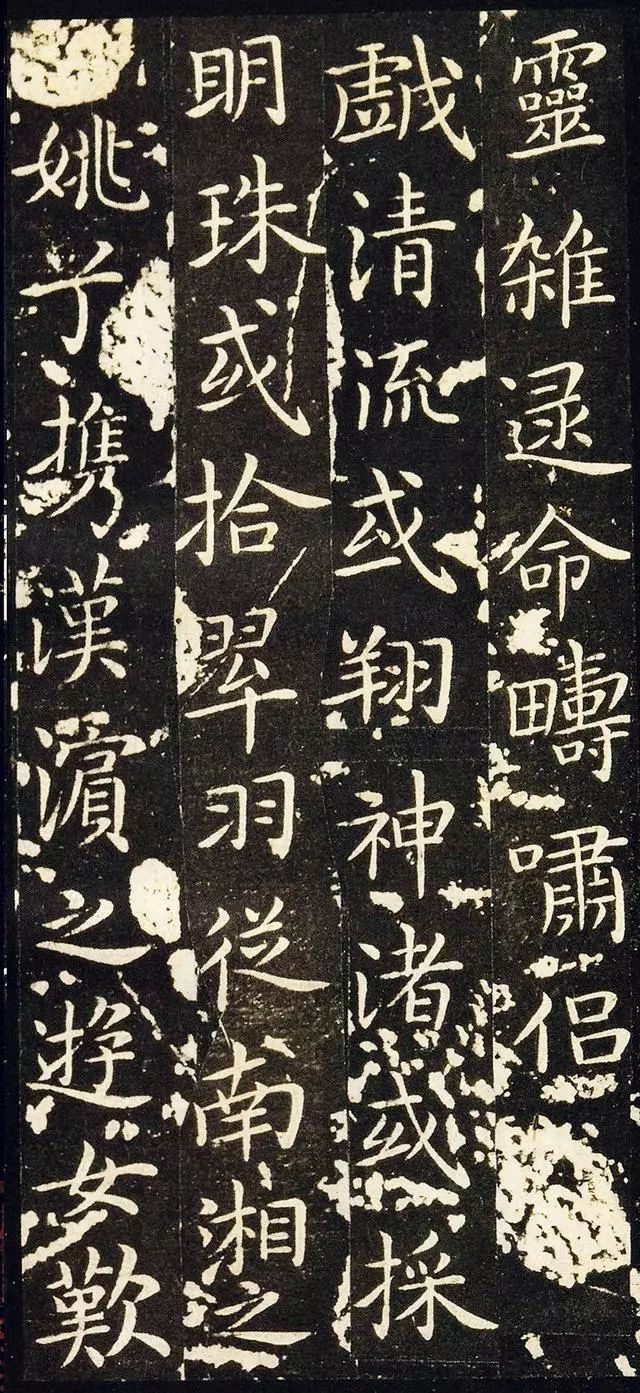 靈雜逯命疇嘯侶
戱清流或翔神渚或採
明珠或拾翠羽從南湘之
姚兮携漢濱之遊女歎